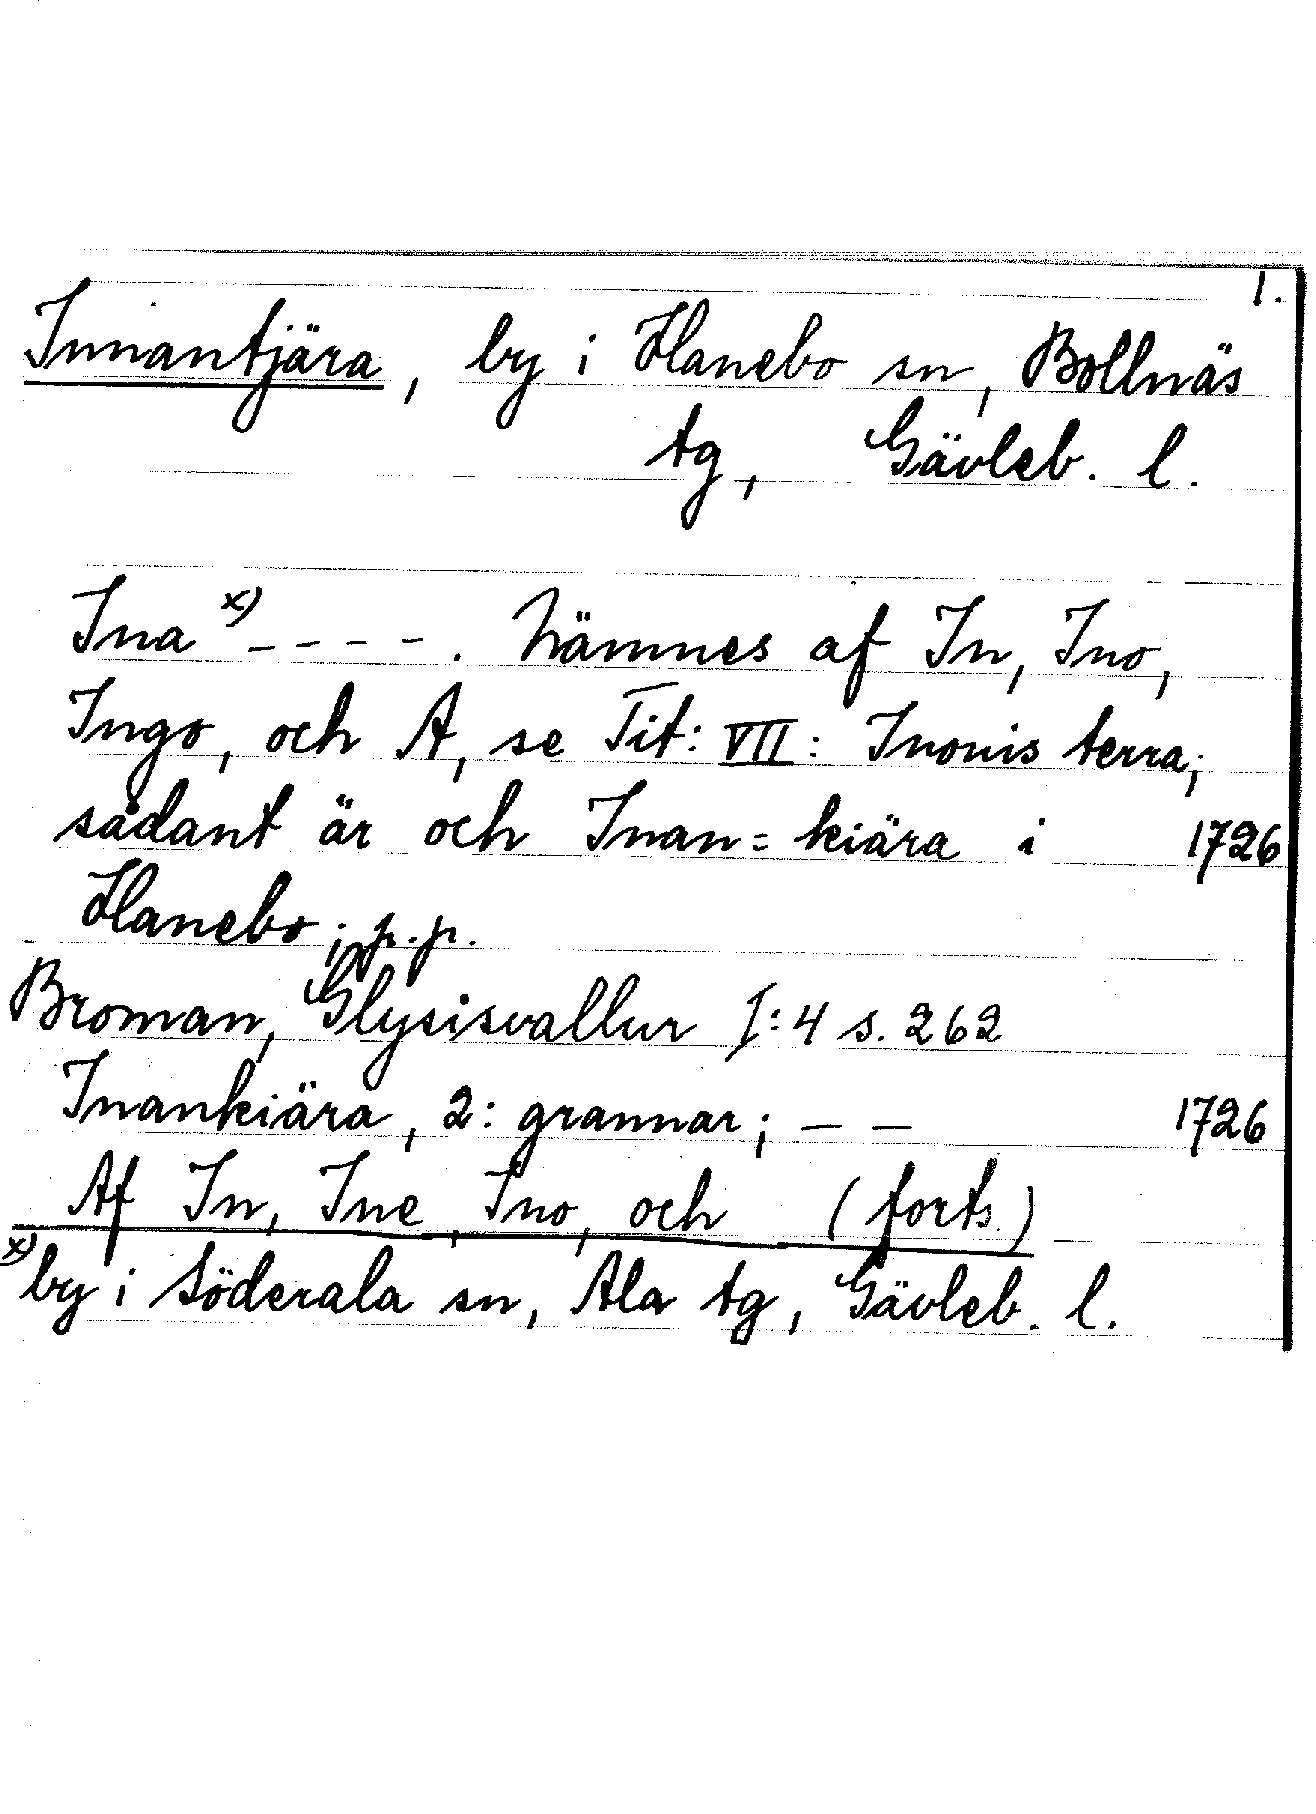 1.
Innantjära, by i Hanebo sn, Bollnäs
tg, Gävleb. l.
Ina x) - - - - . Nämnes af In, Ino,
Ingo, och A, se Tit: VII: Inonis terra;
sådant är och Inan= kiära i 1726
Hanebo; p.p.
Broman, Glysisvallur I:4 s. 262
Inankiära, 2: grannar; — — 1726
Af In, Ine, Ino, och (forts.)
x) by i Söderala sn, Ala tg, Gävleb. l.